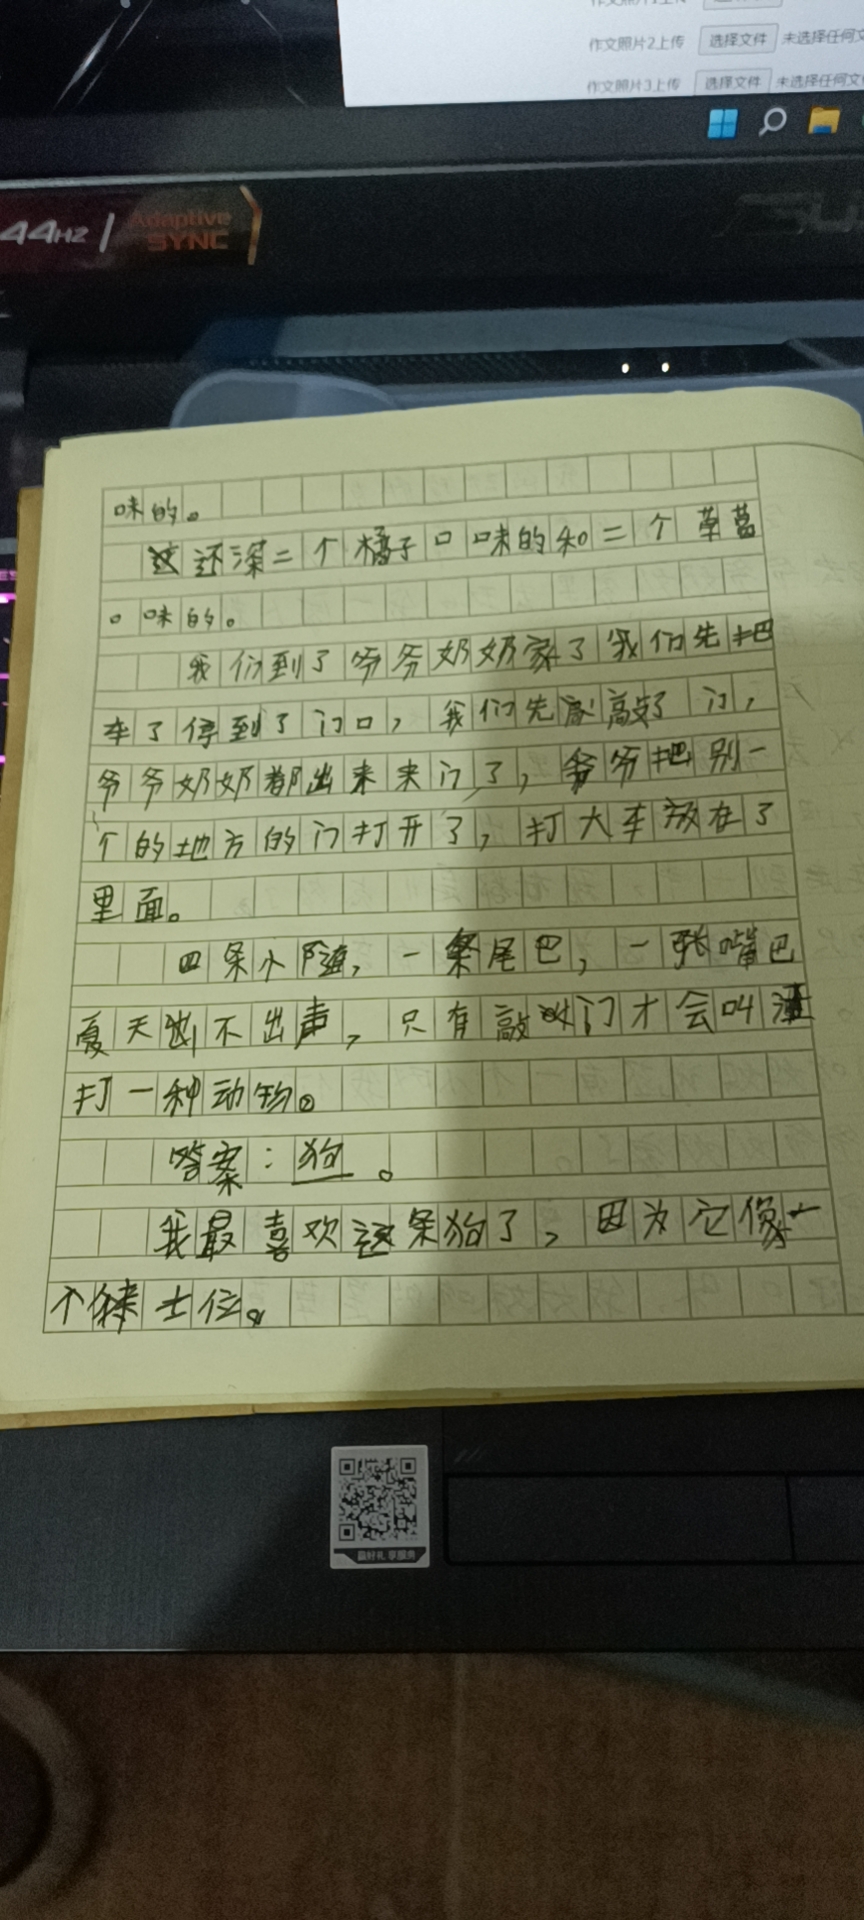 作文照片2上传 选择文件 未选择任何文
作文照片3上传 选择文件 未选择任何文
44HZ Adaptive
SYNC
味的。
还深二个橘子口味的和二个草莓
口味的。
我们到了爷爷奶奶家了我们先把
车了停到了门口，我们先敲了门，
爷爷奶奶都出来来门了，爷爷把别一
个的地方的门打开了，打大车放在了
里面。
四条小，一条尾巴，一张嘴巴
夏天不出声，只有敲门才会叫
打一种动物。
答案：狗。
我最喜欢这条狗了，因为它像一
个士位。
赢好礼 享服务